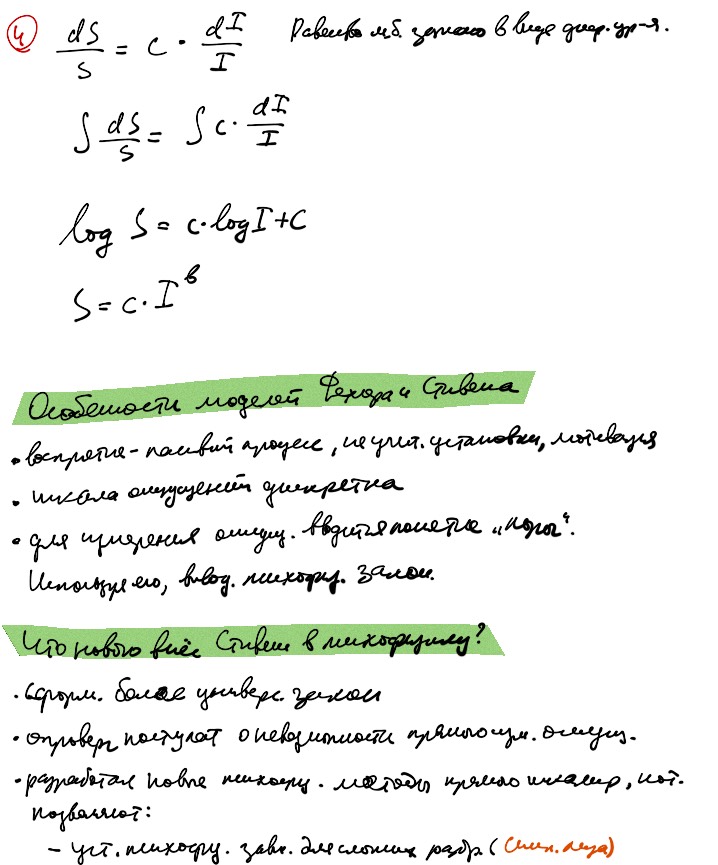 4 dS/S = c · dI/I Равенство м.б. записано в виде диф. ур-я.
∫ dS/S = ∫ c · dI/I
log S = c · log I + C
S = c · I^b
Особености моделей Фехнера и Стивена
• восприятие - пасивный процесс, не учит. установки, мотивация
• шкала ощущений дискретна
• для измерения ощущ. вводится понятие „порог“.
Используя его, вывод. психофиз. закон.
Что нового внёс Стивенс в психофизику?
• сформ. более универс. закон
• опроверг постулат о невозможности прямого изм. ощущ.
• разработал новые психофиз. методы прямого шкалир., кот.
позволяют:
– уст. психофиз. зав. для сложных раздр. (